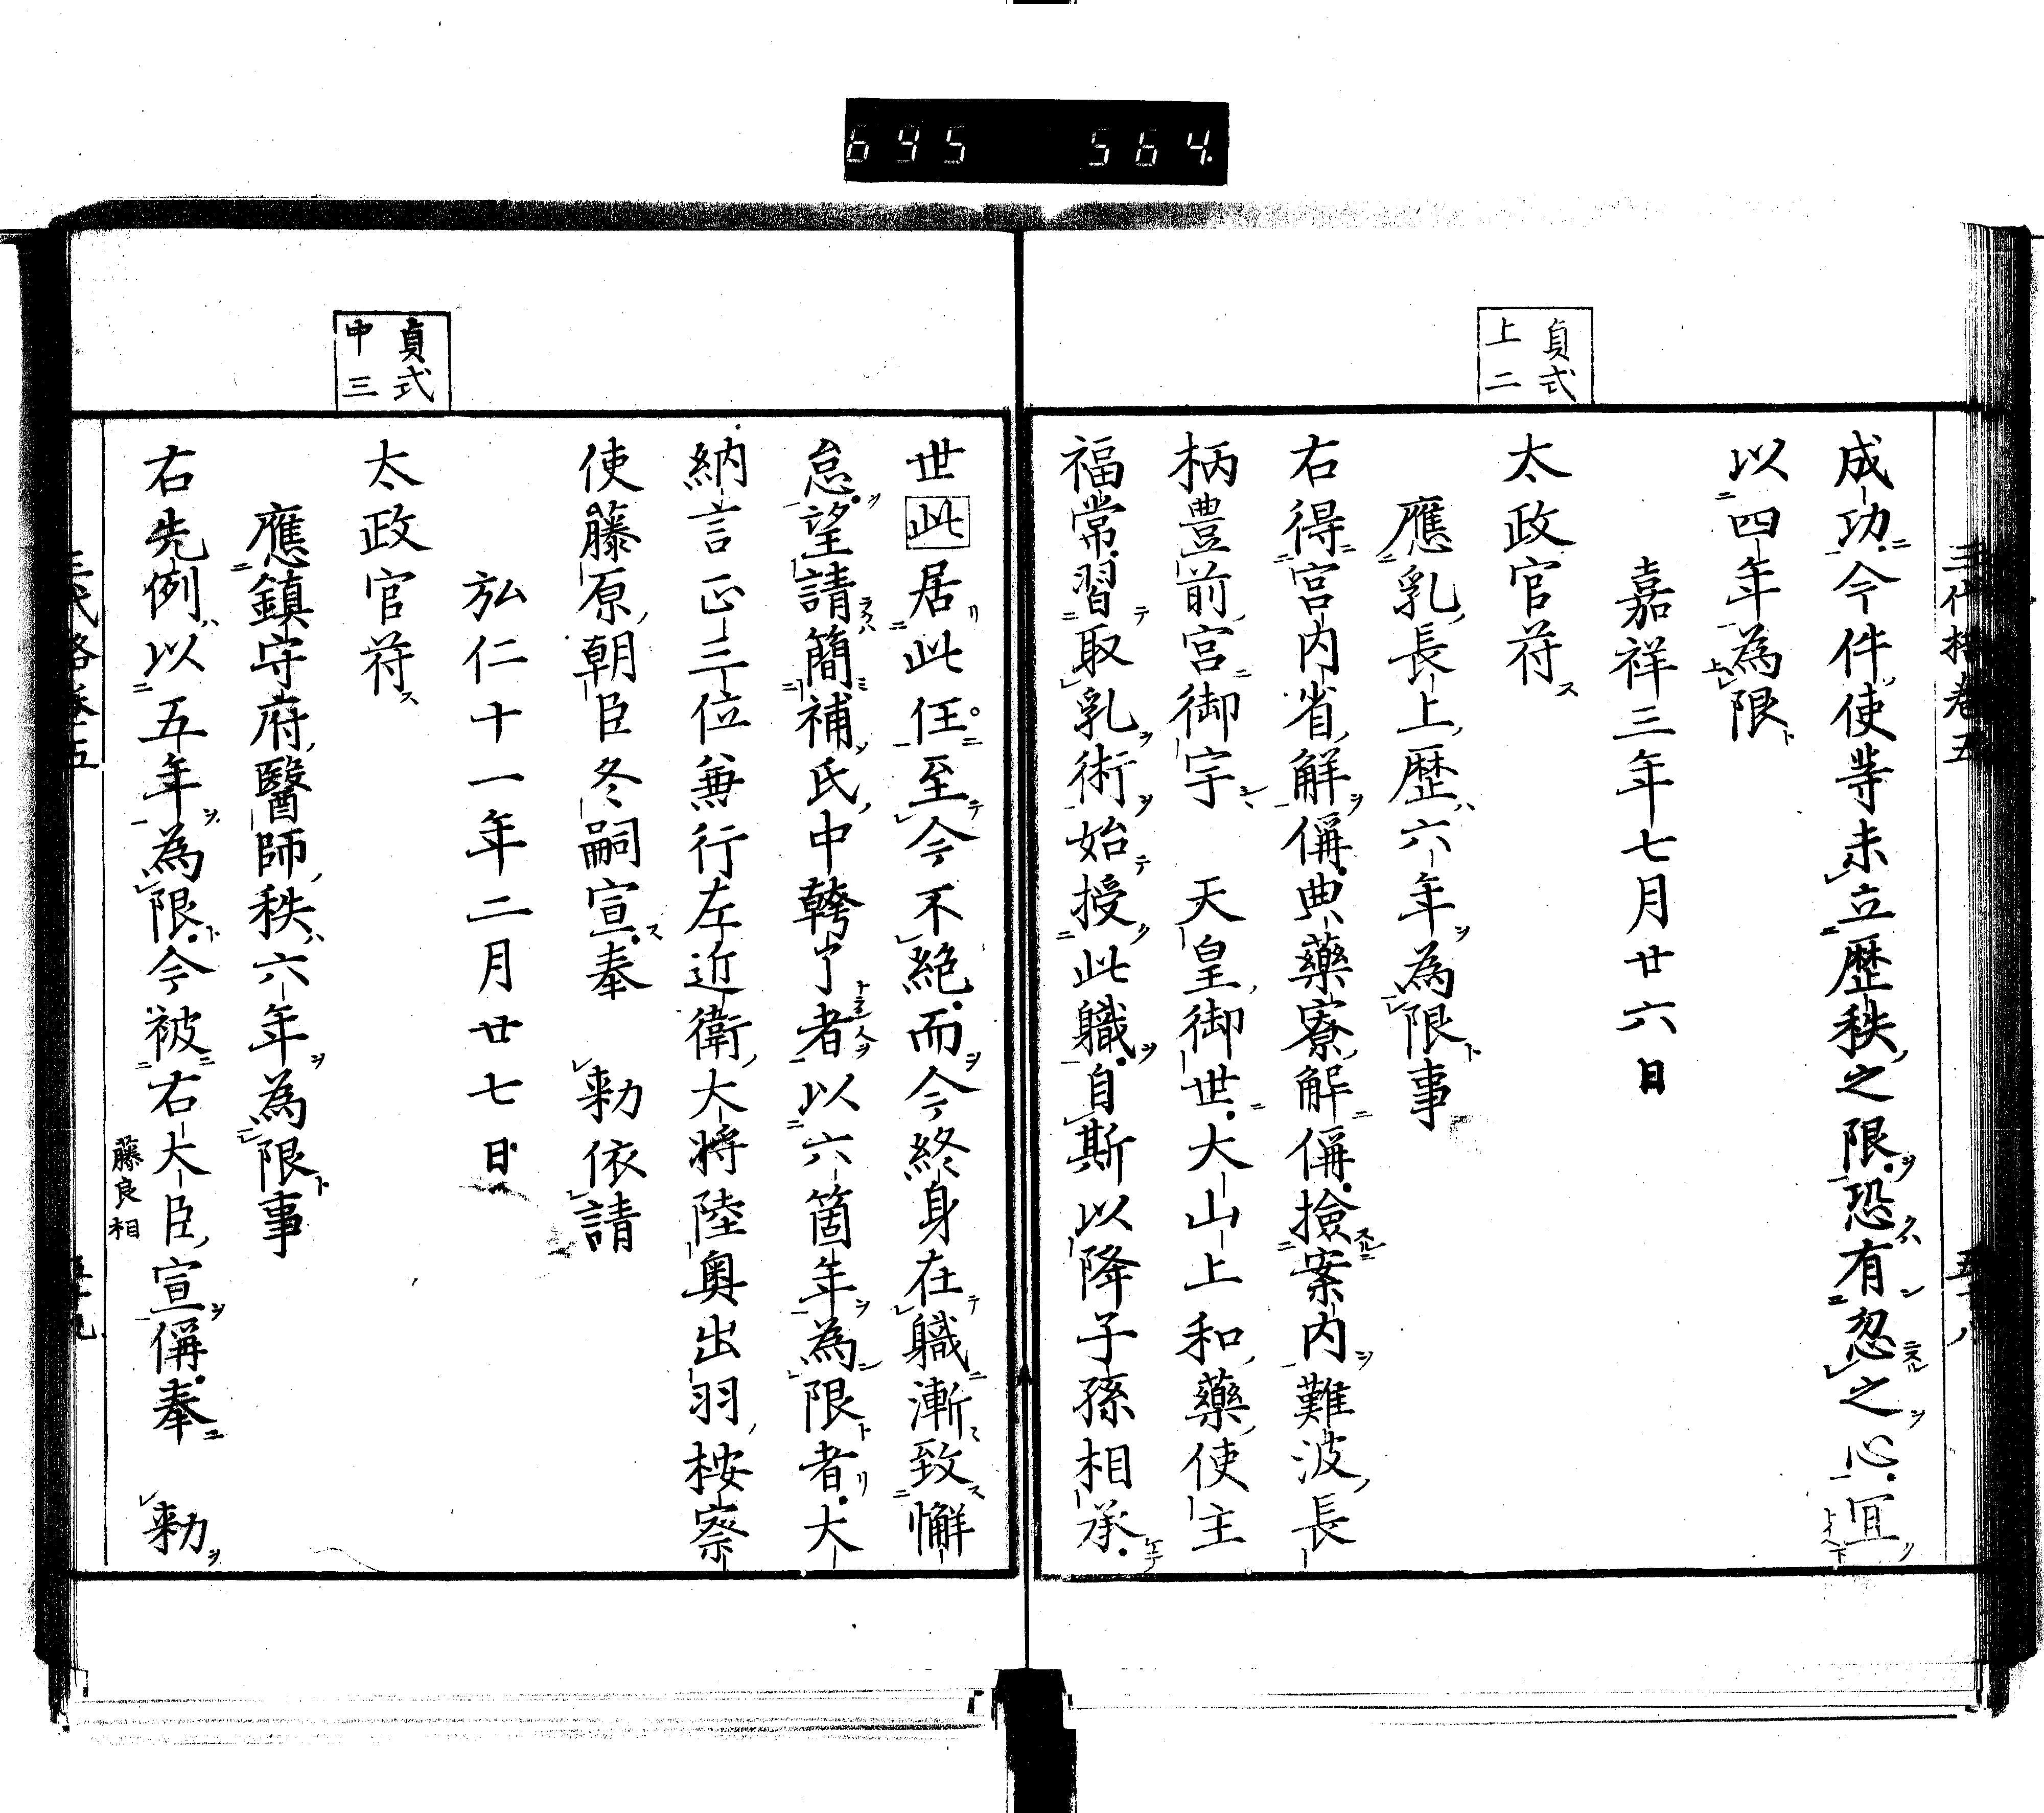 645 564.
貞式
上二
成功今件使等未立歴秩之限恐有忽之心宜
以四年為限
嘉祥三年七月廿六日
太政官符
應乳長上歴六年為限事
右得宮内省解偁典藥寮解偁撿案内難波長
柄豊前宮御宇 天皇御世大山上和藥使主
福常習取乳術始授此職自斯以降子孫相承
貞式
中三
世此居此任至今不絶而今終身在職漸致懈
怠望請簡補氏中幹了者以六箇年為限者大
納言正三位兼行左近衛大将陸奥出羽桉察
使藤原朝臣冬嗣宣奉 勅依請
弘仁十一年二月廿七日
太政官符
應鎮守府醫師秩六年為限事
右先例以五年為限今被右大臣宣偁奉 勅
藤良相